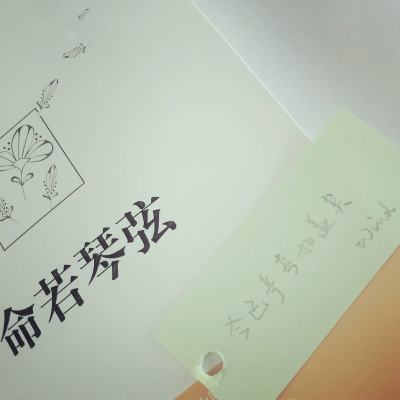 命若琴弦
今已亭亭如盖矣
wind